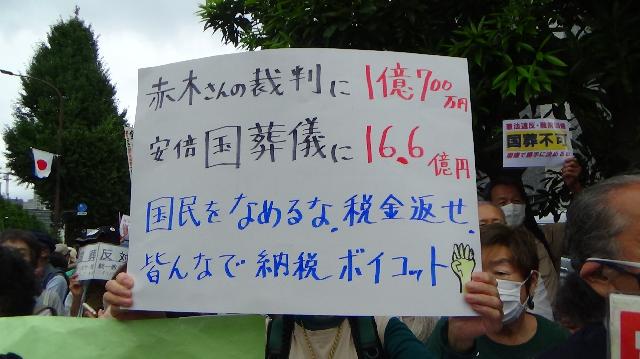 赤木さんの裁判に 1億700万円
安倍国葬儀に 16.6億円
国民をなめるな.税金返せ.
皆んなで納税ボイコット
国葬不可
反対